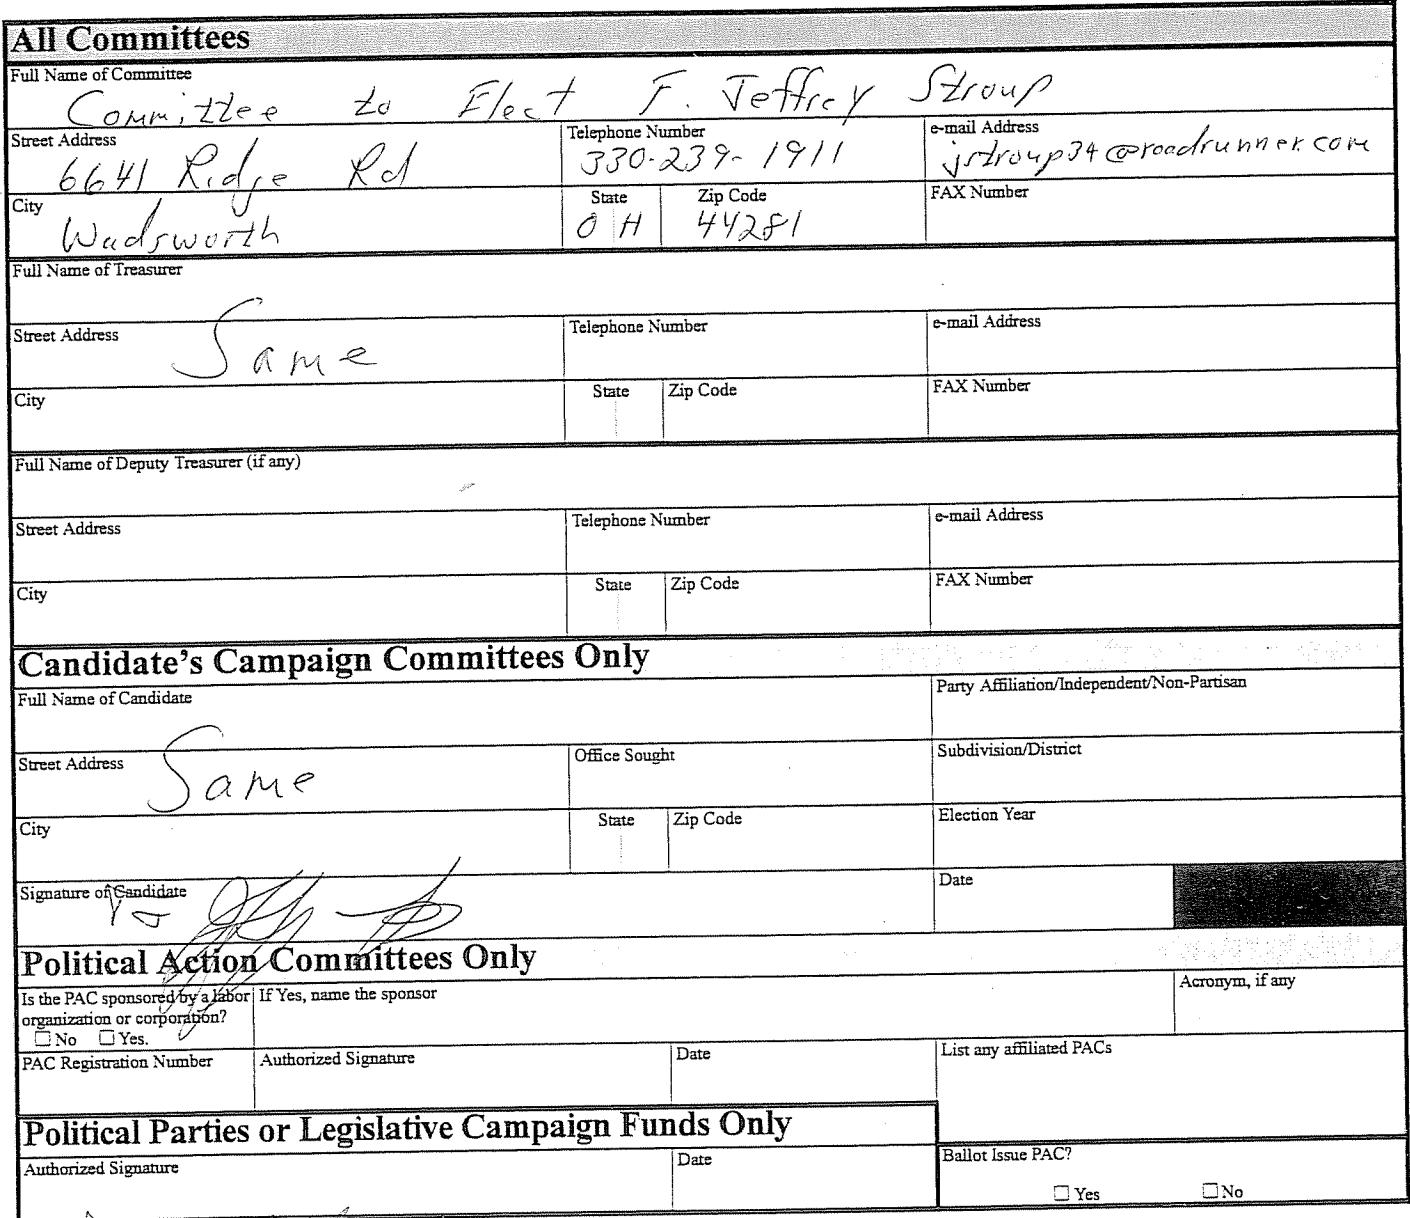 All Committees
Full Name of Committee
Committee to Elect F. Jeffrey Stroup
Street Address Telephone Number e-mail Address
6641 Ridge Rd 330-239-1911 jstroup34@roadrunner.com
City State Zip Code FAX Number
Wadsworth OH 44281
Full Name of Treasurer
Street Address Telephone Number e-mail Address
Same
City State Zip Code FAX Number
Full Name of Deputy Treasurer (if any)
Street Address Telephone Number e-mail Address
City State Zip Code FAX Number
Candidate's Campaign Committees Only
Full Name of Candidate Party Affiliation/Independent/Non-Partisan
Street Address Office Sought Subdivision/District
Same
City State Zip Code Election Year
Signature of Candidate Date
Political Action Committees Only
Is the PAC sponsored by a labor If Yes, name the sponsor Acronym, if any
organization or corporation?
☐ No ☐ Yes.
PAC Registration Number Authorized Signature Date List any affiliated PACs
Political Parties or Legislative Campaign Funds Only
Authorized Signature Date Ballot Issue PAC?
☐ Yes ☐ No